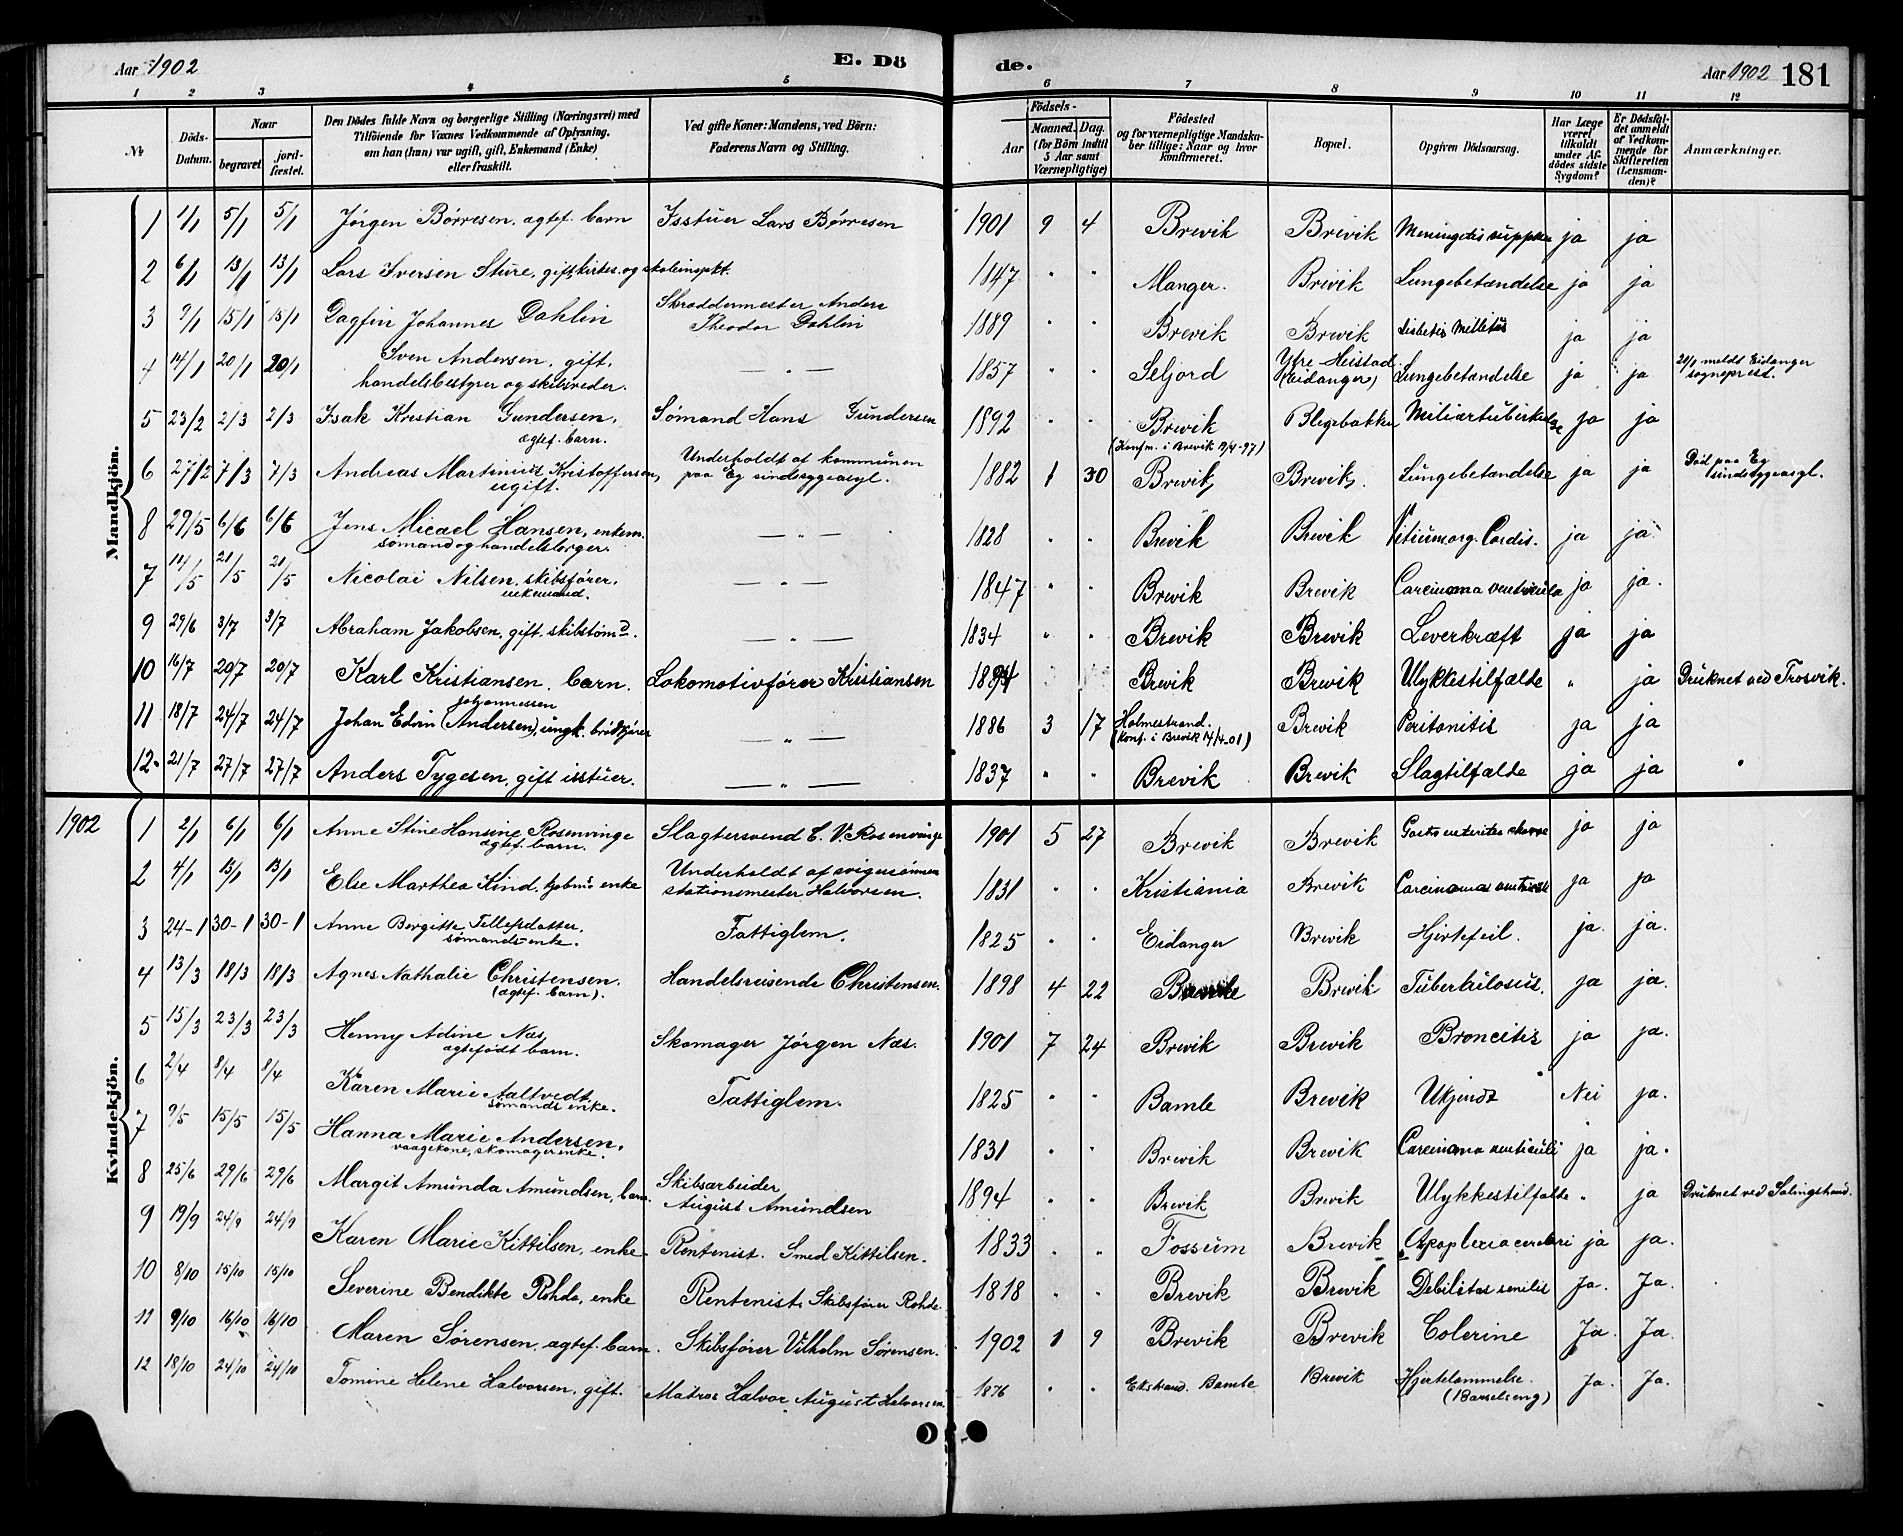 Aar 1902
E. Dö
de.
Aar 1902 181
1 2 3 4 5 6 7 8 9 10 11 12
№
Döds-Datum.
Naar
begravet
jord-fæstet.
Den Dödes fulde Navn og borgerlige Stilling (Næringsvei) med
Tilföiende for Voxnes Vedkommende af Oplysning,
om han (hun) var ugift, gift, Enkemand (Enke)
eller fraskilt.
Ved gifte Koner: Mandens, ved Börn:
Faderens Navn og Stilling.
Födsels-
Aar
Maaned. Dag.
(for Börn indtil
5 Aar samt
Værnepligtige)
Födested
og for værnepligtige Mandska-
ber tillige: Naar og hvor
konfirmeret.
Bopæl.
Opgiven Dödsaarsag.
Har Læge
været
tilkaldt
under Af-
dödes sidste
Sygdom?
Er Dödsfal-
det anmeldt
af Vedkom-
mende for
Skifteretten
(Lensman-
den)?
Anmærkninger.
Mandkjön.
1 1/1 5/1 5/1 Jörgen Börresen. ægtef. barn Isstuer Lars Börresen 1901 9 4 Brevik Brevik ja ja
2 6/1 13/1 13/1 Lars Iversen Sture, gift, kirkes. og skoleinspkt. 1847 " " Manger. Brevik Lungebetændelse ja ja
3 9/1 15/1 15/1 Dagfin Johannes Dahlin Skræddermester Anders
Theodor Dahlin 1889 " " Brevik Brevik diabetis Mellitus ja ja
4 14/1 20/1 20/1 Sven Andersen, gift,
handelsbestyrer og skibsreder. — " — 1857 " " Seljord Yfre Heistad
(Eidanger) Lungebetændelse ja ja 20/1 meldt Eidanger
sogneprest.
5 23/2 2/3 2/3 Isak Kristian Gundersen,
ægtef. barn. Sömand Hans Gundersen 1892 " " Brevik Blegebakken Miliærtuberkulose ja ja
(Konfm. i Brevik 2/4-97)
6 27/2 7/3 7/3 Andreas Martinius Kristoffersen,
ugift. Underholdt af kommunen
paa Eg sindsygeasyl. 1882 1 30 Brevik Brevik. Lungebetændelse ja ja Död paa Eg
sindsygeasyl.
8 29/5 6/6 6/6 Jens Micael Hansen, enkem.
sömand og handelsborger. — " — 1828 " " Brevik Brevik Vitium org. Cordis. ja ja
7 14/5 21/5 21/5 Nicolai Nilsen, skibsförer,
enkemand. — " — 1847 " " Brevik Brevik Carcinoma ventriculi ja ja.
9 29/6 3/7 3/7 Abraham Jakobsen, gift. skibstömd. — " — 1834 " " Brevik Brevik Leverkræft ja ja
10 16/7 20/7 20/7 Karl Kristiansen. barn. Lokomotivförer Kristiansen Brevik Brevik Ulykkestilfælde " ja Druknet ved Trosvik.
11 18/7 24/7 24/7 Johannessen
Johan Edvin (Andersen), ungk. brödkjörer — " — 1886 3 17 Holmestrand.
(Konf. i Brevik 14/4-01) Brevik Peritonitis ja ja
12. 21/7 27/7 27/7 Anders Tygesen, gift isstuer. — " — 1837 " " Brevik Brevik Slagtilfælde ja ja
1902
Kvindekjön.
1 2/1 6/1 6/1 Anne Stine Hansine Rosenvinge
ægtef. barn. Slagtersvend C. V. Rosenvinge 1901 5 27 Brevik Brevik ja ja
2 4/1 13/1 13/1 Else Marthea Kind, enke Underholdt af svigersönnen
stationsmester Halvorsen. 1831 " " Kristiania Brevik Carcinoma ventriculi ja ja
3 24-1 30-1 30-1 Anne Birgitte Tellefsdatter.
sömands enke. Fattiglem. 1825 " " Eidanger Brevik Hjertefeil. ja. ja.
4 13/3 18/3 18/3 Agnes Nathalie Christensen.
(ægtef. barn). Handelsreisende Christensen. 1898 4 22 Brevik Tuberkulosus. ja ja.
5 15/3 23/3 23/3 Henny Adine Næs
ægtefödt barn. Skomager Jörgen Næs. 1901 7 24 Brevik Brevik Broncitis ja ja.
6 2/4 8/4 8/4 Karen Marie Aaltvedt
sömands enke. Fattiglem. 1825 " " Bamle Brevik Ukjendt Nei ja.
7 9/5 15/5 15/5 Hanna Marie Andersen,
vaagekone, skomagerenke. 1831 " " Brevik Brevik Carcinoma venticuli ja ja.
8 25/6 29/6 29/6 Margit Amunda Amundsen, barn. Skibsarbeider
August Amundsen 1894 " " Brevik Brevik Ulykkestilfælde " ja Druknet ved Salingstrand.
9 19/9 24/9 24/9 Karen Marie Kittilsen, enke. Rentenist. Smed Kittilsen. 1833 " " Fossum Brevik Apoplexia cerebri ja ja.
10 8/10 15/10 15/10 Severine Bendikte Rohde, enke Rentenist, Skibsförer Rohde. 1818 " " Brevik Brevik Debilitas senilis Ja. Ja.
11 9/10 16/10 16/10 Maren Sörensen, ægtef. barn. Skibsförer Vilhelm Sörensen. 1902 1 9 Brevik Brevik Colerine Ja. Ja.
12 18/10 24/10 24/10 Tomine Helene Halvorsen, gift. Matros Halvor August Halvorsen. 1876 " " Ekstrand. Bamle Brevik Hjertelammelse.
(Barselseng) Ja. Ja.